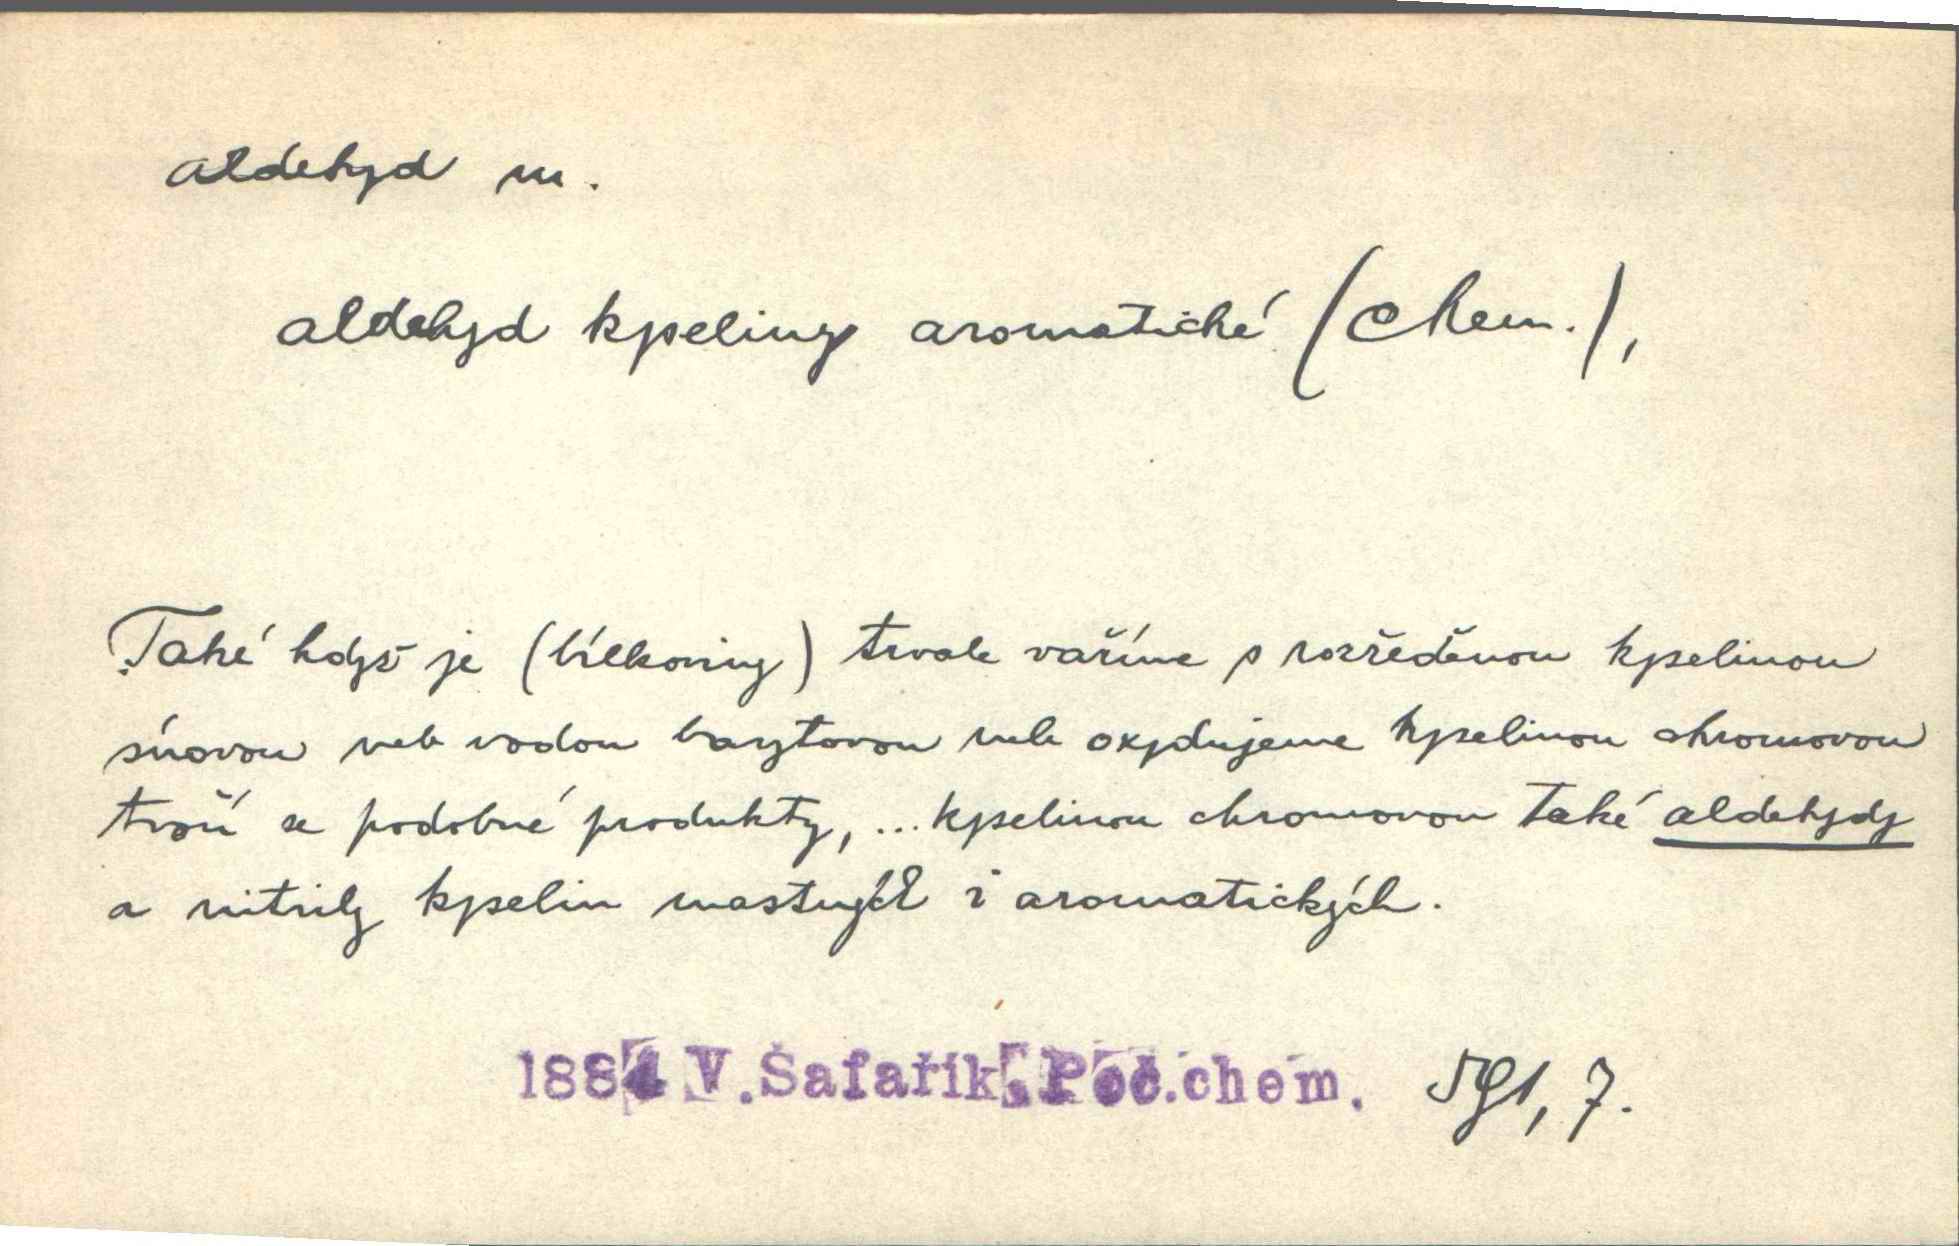 aldehyd m.
aldehyd kyseliny aromatické (chem.),
Také když je (bílkoviny) trvale vaříme s rozředěnou kyselinou
sírovou neb vodou barytovou neb oxydujeme kyselinou chromovou
tvoří se podobné produkty, ... kyselinou chromovou také aldehydy
a nitrily kyselin mastných i aromatických.
1884 V. Šafařík. Poč.chem. 591, 7.